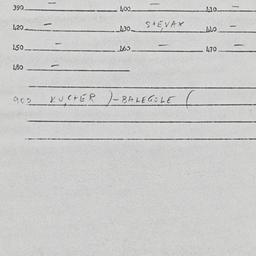 390 — 400 — 410 —
420 — 430 STEVAX 440 —
450 — 460 — 470 —
480 —
900 KUCHER )-BALEGULE (